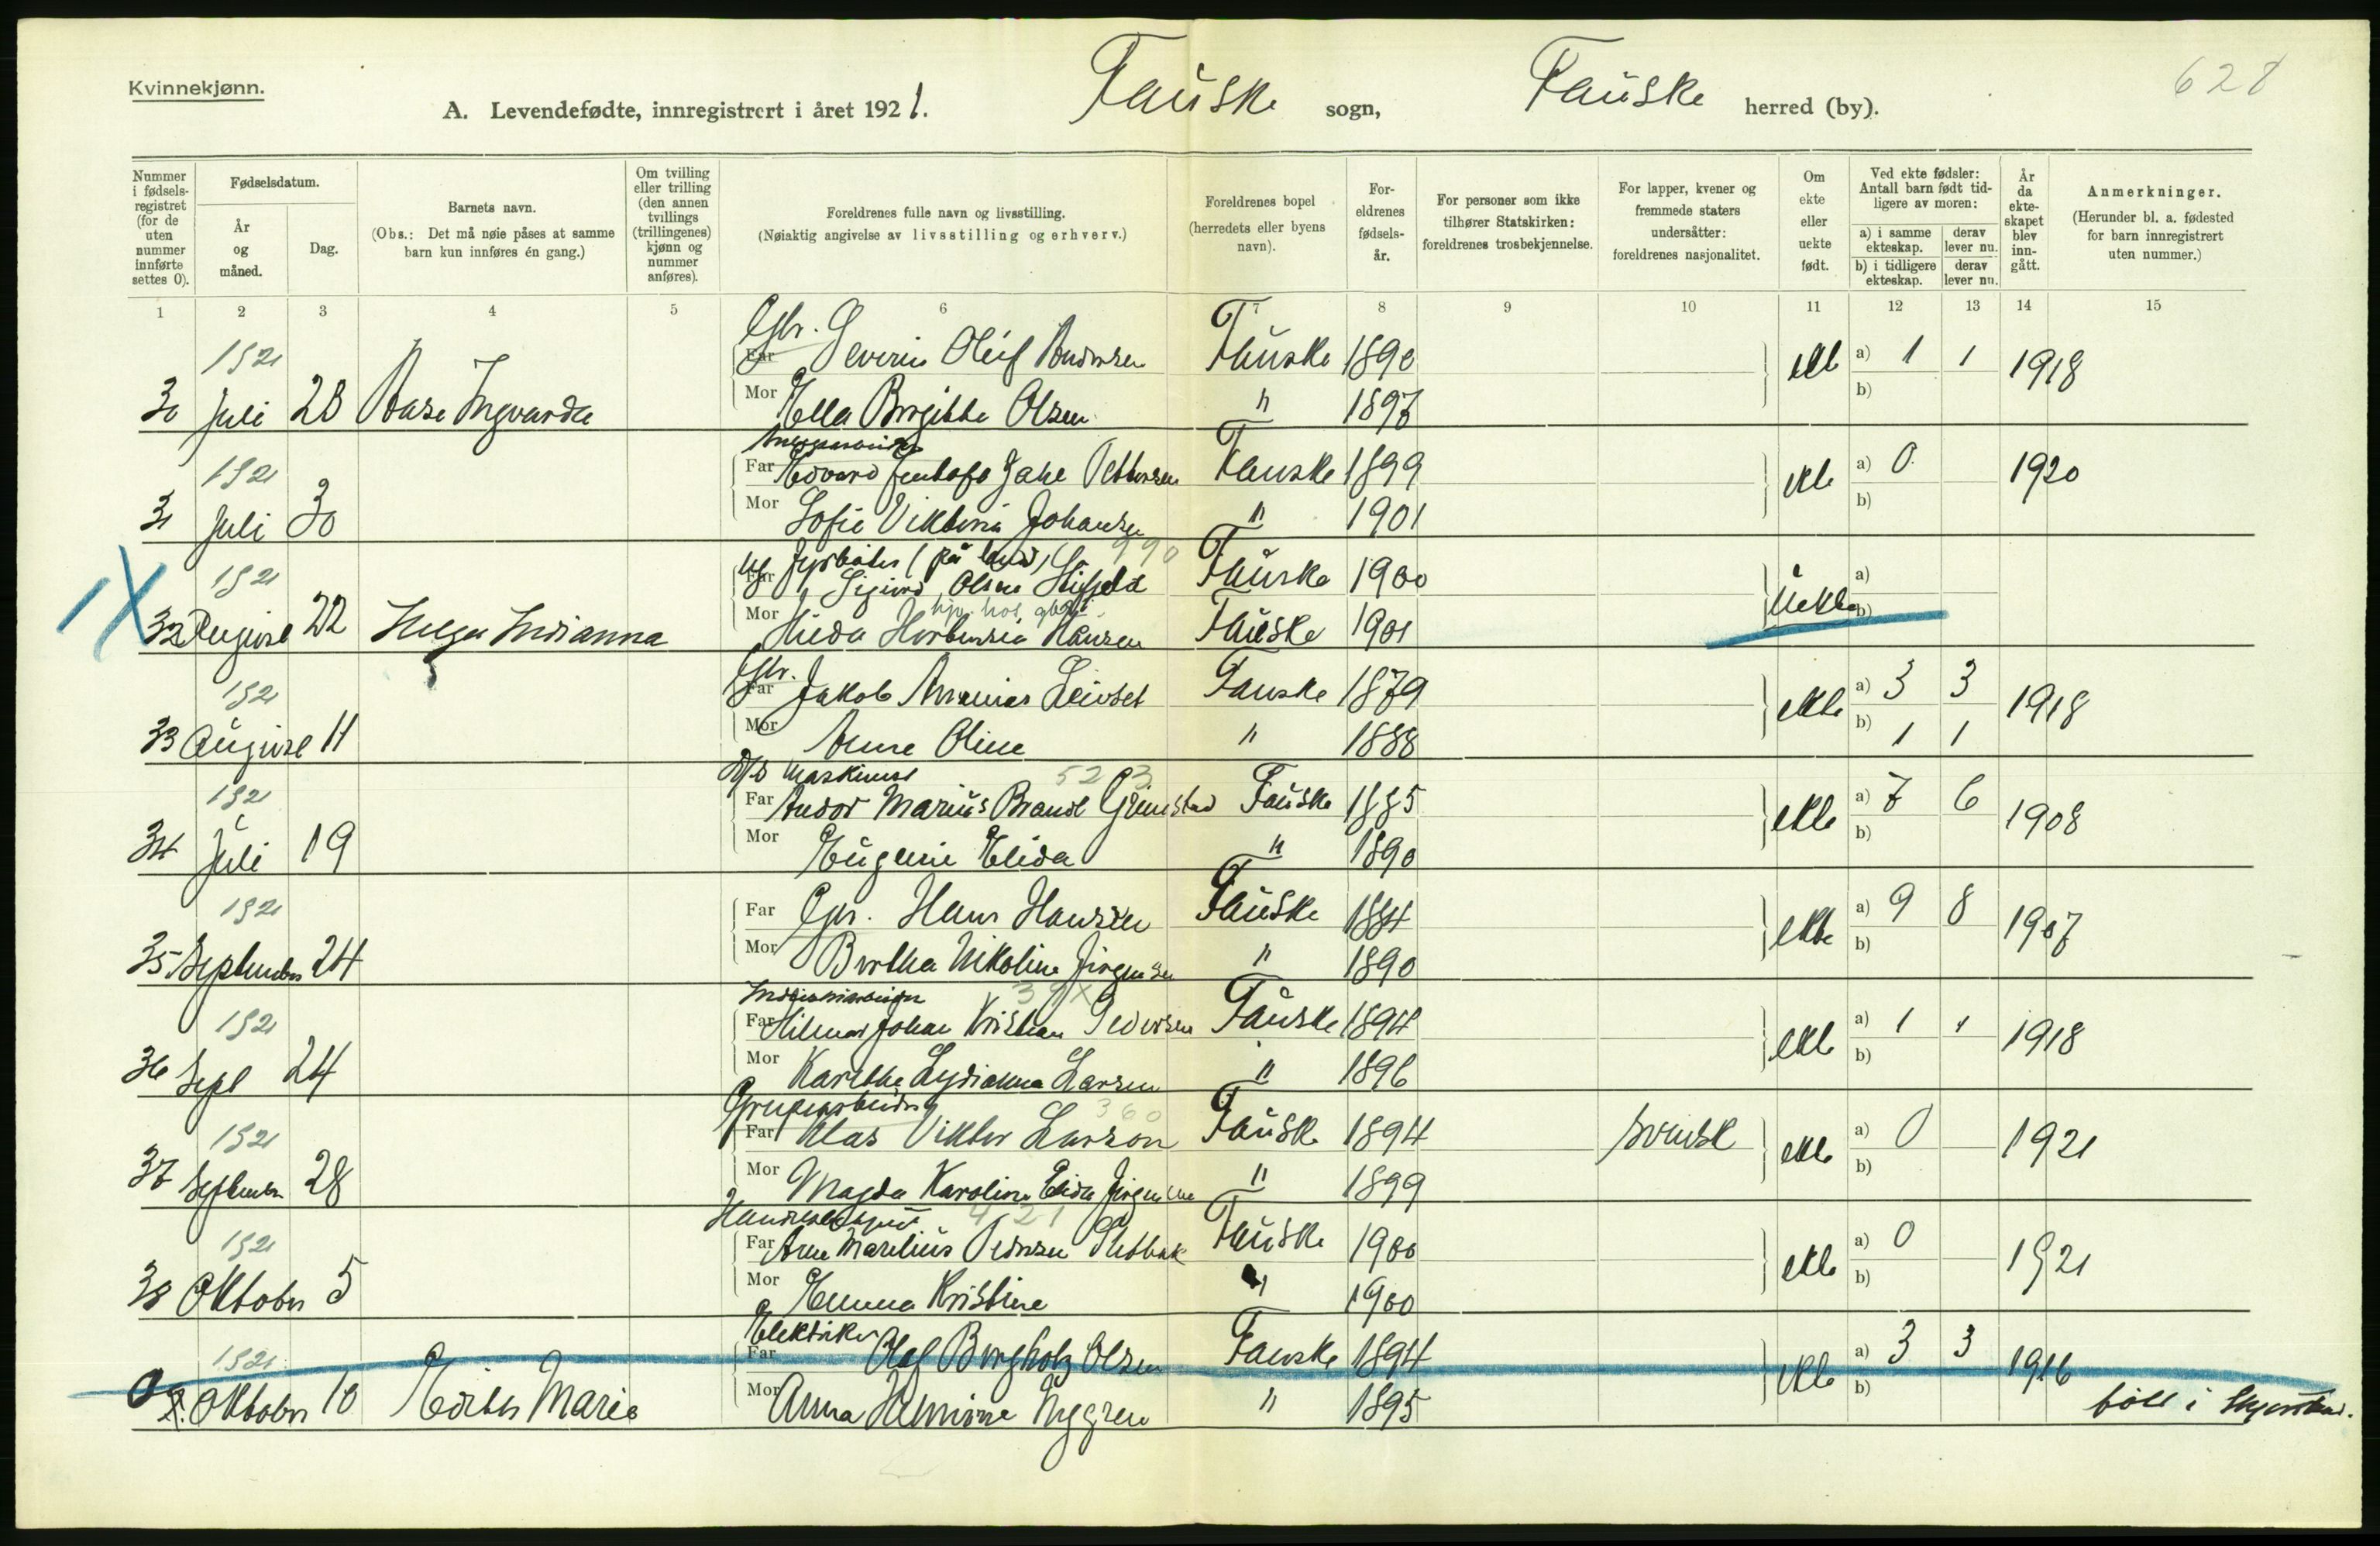 Kvinnekjønn.
A. Levendefødte, innregistrert i året 1921. Fauske sogn, Fauske herred (by). 628
Nummer i fødselsregistret (for de uten nummer innførte settes 0).
Fødselsdatum.
År og måned.
Dag.
Barnets navn.
(Obs.: Det må nøie påses at samme barn kun innføres én gang.)
Om tvilling eller trilling (den annen tvillings (trillingenes) kjønn og nummer anføres).
Foreldrenes fulle navn og livsstilling.
(Nøiaktig angivelse av livsstilling og erhverv.)
Foreldrenes bopel (herredets eller byens navn).
Foreldrenes fødselsår.
For personer som ikke tilhører Statskirken: foreldrenes trosbekjennelse.
For lapper, kvener og fremmede staters undersåtter: foreldrenes nasjonalitet.
Om ekte eller uekte født.
Ved ekte fødsler: Antall barn født tidligere av moren:
a) i samme ekteskap. derav lever nu.
b) i tidligere ekteskap. derav lever nu.
År da ekteskapet blev inngått.
Anmerkninger.
(Herunder bl. a. fødested for barn innregistrert uten nummer.)
1 2 3 4 5 6 7 8 9 10 11 12 13 14 15
Gbr.
1921 Far Severin Oluf Andersen Fauske 1890 ekte a) 1 1 1918
30 Juli 28 Aase Ingvarda Mor Ella Birgitte Olsen " 1897 b)
1921 Far Edvard Pettersen Fauske 1899 ekte a) 0 1920
31 Juli 30 Mor Sofie Viktoria Johansen " 1901 b)
Ug. Fyrbøter (på land) 990
1921 Far Sigurd Olsen Fauske 1900 Uekte a)
hjp. hos
32 August 22 Helga Indianna Mor Hilda Hansen Fauske 1901 b)
Gbr.
1921 Far Jakob Ananias Leivset Fauske 1879 ekte a) 3 3 1918
33 August 11 Mor Anne Oline " 1888 b) 1 1
D/S Maskinist 523
1921 Far Andor Marius Brandt Grimstad Fauske 1885 ekte a) 7 6 1908
34 Juli 19 Mor Eugenie Elida " 1890 b)
1921 Far Gbr. Hans Hansen Fauske 1884 ekte a) 9 8 1907
35 September 24 Mor Bertha Nikoline Jørgensen " 1890 b)
1921 Far Hilmar Johan Kristian Pedersen Fauske 1894 ekte a) 1 1 1918
36 Sept 24 Mor Karethe Lydianna Larsen " 1896 b)
Grubearbeider 360
1921 Far Klas Viktor Larson Fauske 1894 svensk ekte a) 0 1921
37 September 28 Mor Magda Karoline Elida Jørgensen " 1899 b)
421
1921 Far Arne Marelius Pedersen Fauske 1900 ekte a) 0 1921
38 Oktober 5 Mor Emma Kristine " 1900 b)
Elektriker
1921 Far Olaf Bergholz Olsen Fauske 1894 ekte a) 3 3 1916
0 Oktober 10 Edith Marie Mor Anna Nygren " 1895 b) født i Skjerstad.